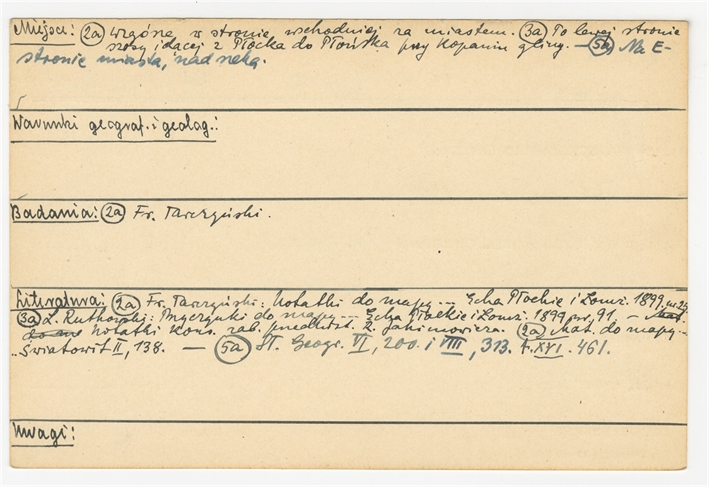 Miejsce: (2a) Wzgórze w stronie wschodniej za miastem. (3a) Po lewej stronie
szosy idącej z Płocka do Płońska przy kopaniu gliny. — (5a) Na E-
stronie miasta, nad rzeką.
Warunki geograf. i geolog.:
Badania: (2a) Fr. Tarczyński.
Literatura: (2a) Fr. Tarczyński: Notatki do mapy... Echa Płockie i Łomż. 1899, nr. 25.
(3a) L. Rutkowski: Przyczynki do mapy... Echa Płockie i Łomż. 1899, nr. 91. —
Notatki Kons. zab. przedhist. R. Jakimowicza. (2a) Mat. do mapy...
Światowit II, 138. — (5a) Sł. Geogr. VI, 200. i VIII, 313. t. XVI. 461.
Uwagi: